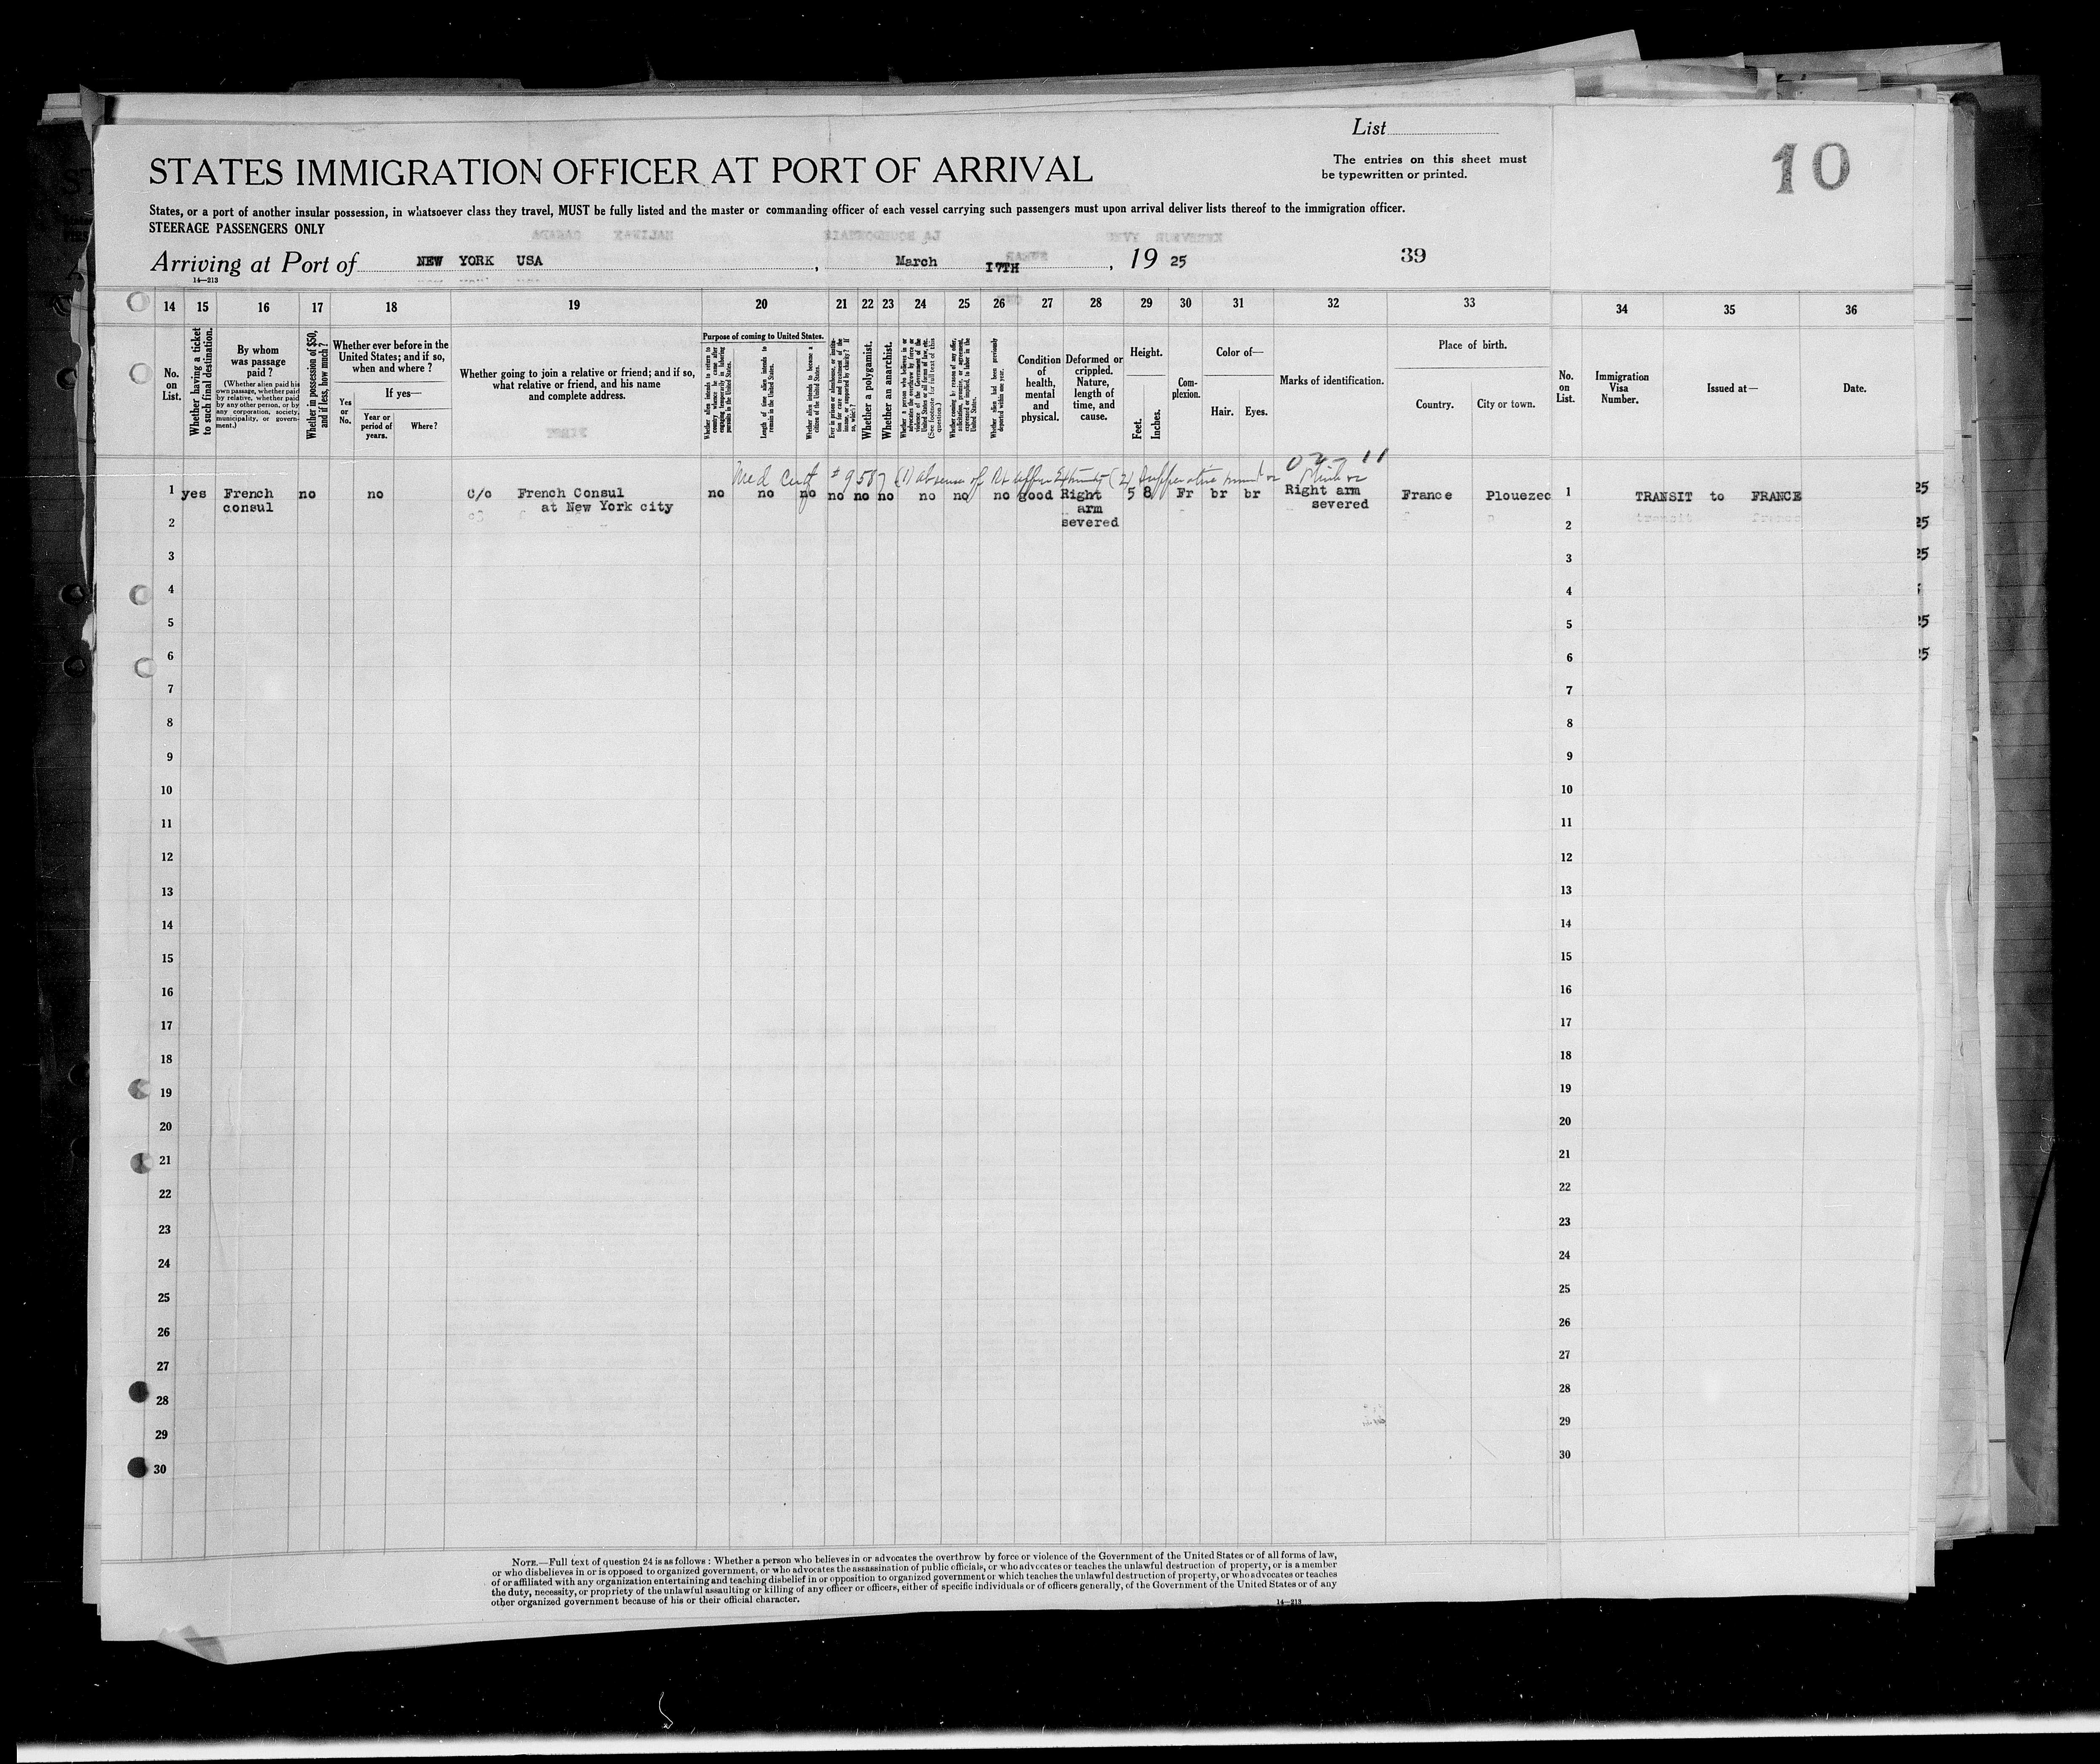 List
10
STATES IMMIGRATION OFFICER AT PORT OF ARRIVAL
The entries on this sheet must
be typewritten or printed.
States, or a port of another insular possession, in whatsoever class they travel, MUST be fully listed and the master or commanding officer of each vessel carrying such passengers must upon arrival deliver lists thereof to the immigration officer.
STEERAGE PASSENGERS ONLY
Arriving at Port of NEW YORK USA, March 17TH, 19 25
39
14—213
14 15 16 17 18 19 20 21 22 23 24 25 26 27 28 29 30 31 32 33 34 35 36
No. on List.
Whether having a ticket to such final destination.
By whom was passage paid?
(Whether alien paid his own passage, whether paid by relative, whether paid by any other person, or by any corporation, society, municipality, or government.)
Whether in possession of $50, and if less, how much?
Whether ever before in the United States; and if so, when and where?
Yes or No.
If yes—
Year or period of years.
Where?
Whether going to join a relative or friend; and if so, what relative or friend, and his name and complete address.
Purpose of coming to United States.
Whether alien intends to return to country whence he came after engaging temporarily in laboring pursuits in the United States.
Length of time alien intends to remain in the United States.
Whether alien intends to become a citizen of the United States.
Ever in prison or almshouse, or institution for care and treatment of the insane, or supported by charity? If so, which?
Whether a polygamist.
Whether an anarchist.
Whether a person who believes in or advocates the overthrow by force or violence of the Government of the United States or all forms of law, etc. (See footnote for full text of this question.)
Whether coming by reason of any offer, solicitation, promise, or agreement, expressed or implied, to labor in the United States.
Whether alien had been previously deported within one year.
Condition of health, mental and physical.
Deformed or crippled. Nature, length of time, and cause.
Height.
Feet.
Inches.
Complexion.
Color of—
Hair.
Eyes.
Marks of identification.
Place of birth.
Country.
City or town.
No. on List.
Immigration Visa Number.
Issued at—
Date.
Med Cert #9587 (1) absence of Rt upper Extremity (2)
1 yes French consul no no C/o French Consul at New York city no no no no no no no no no good Right arm severed 5 8 Fr br br Right arm severed France Plouezec 1 TRANSIT to FRANCE 25
2 2 25
3 3 25
4 4
5 5 25
6 6 25
7 7
8 8
9 9
10 10
11 11
12 12
13 13
14 14
15 15
16 16
17 17
18 18
19 19
20 20
21 21
22 22
23 23
24 24
25 25
26 26
27 27
28 28
29 29
30 30
NOTE.—Full text of question 24 is as follows: Whether a person who believes in or advocates the overthrow by force or violence of the Government of the United States or of all forms of law,
or who disbelieves in or is opposed to organized government, or who advocates the assassination of public officials, or who advocates or teaches the unlawful destruction of property, or is a member
of or affiliated with any organization entertaining and teaching disbelief in or opposition to organized government or which teaches the unlawful destruction of property, or who advocates or teaches
the duty, necessity, or propriety of the unlawful assaulting or killing of any officer or officers, either of specific individuals or of officers generally, of the Government of the United States or of any
other organized government because of his or their official character.
14—213